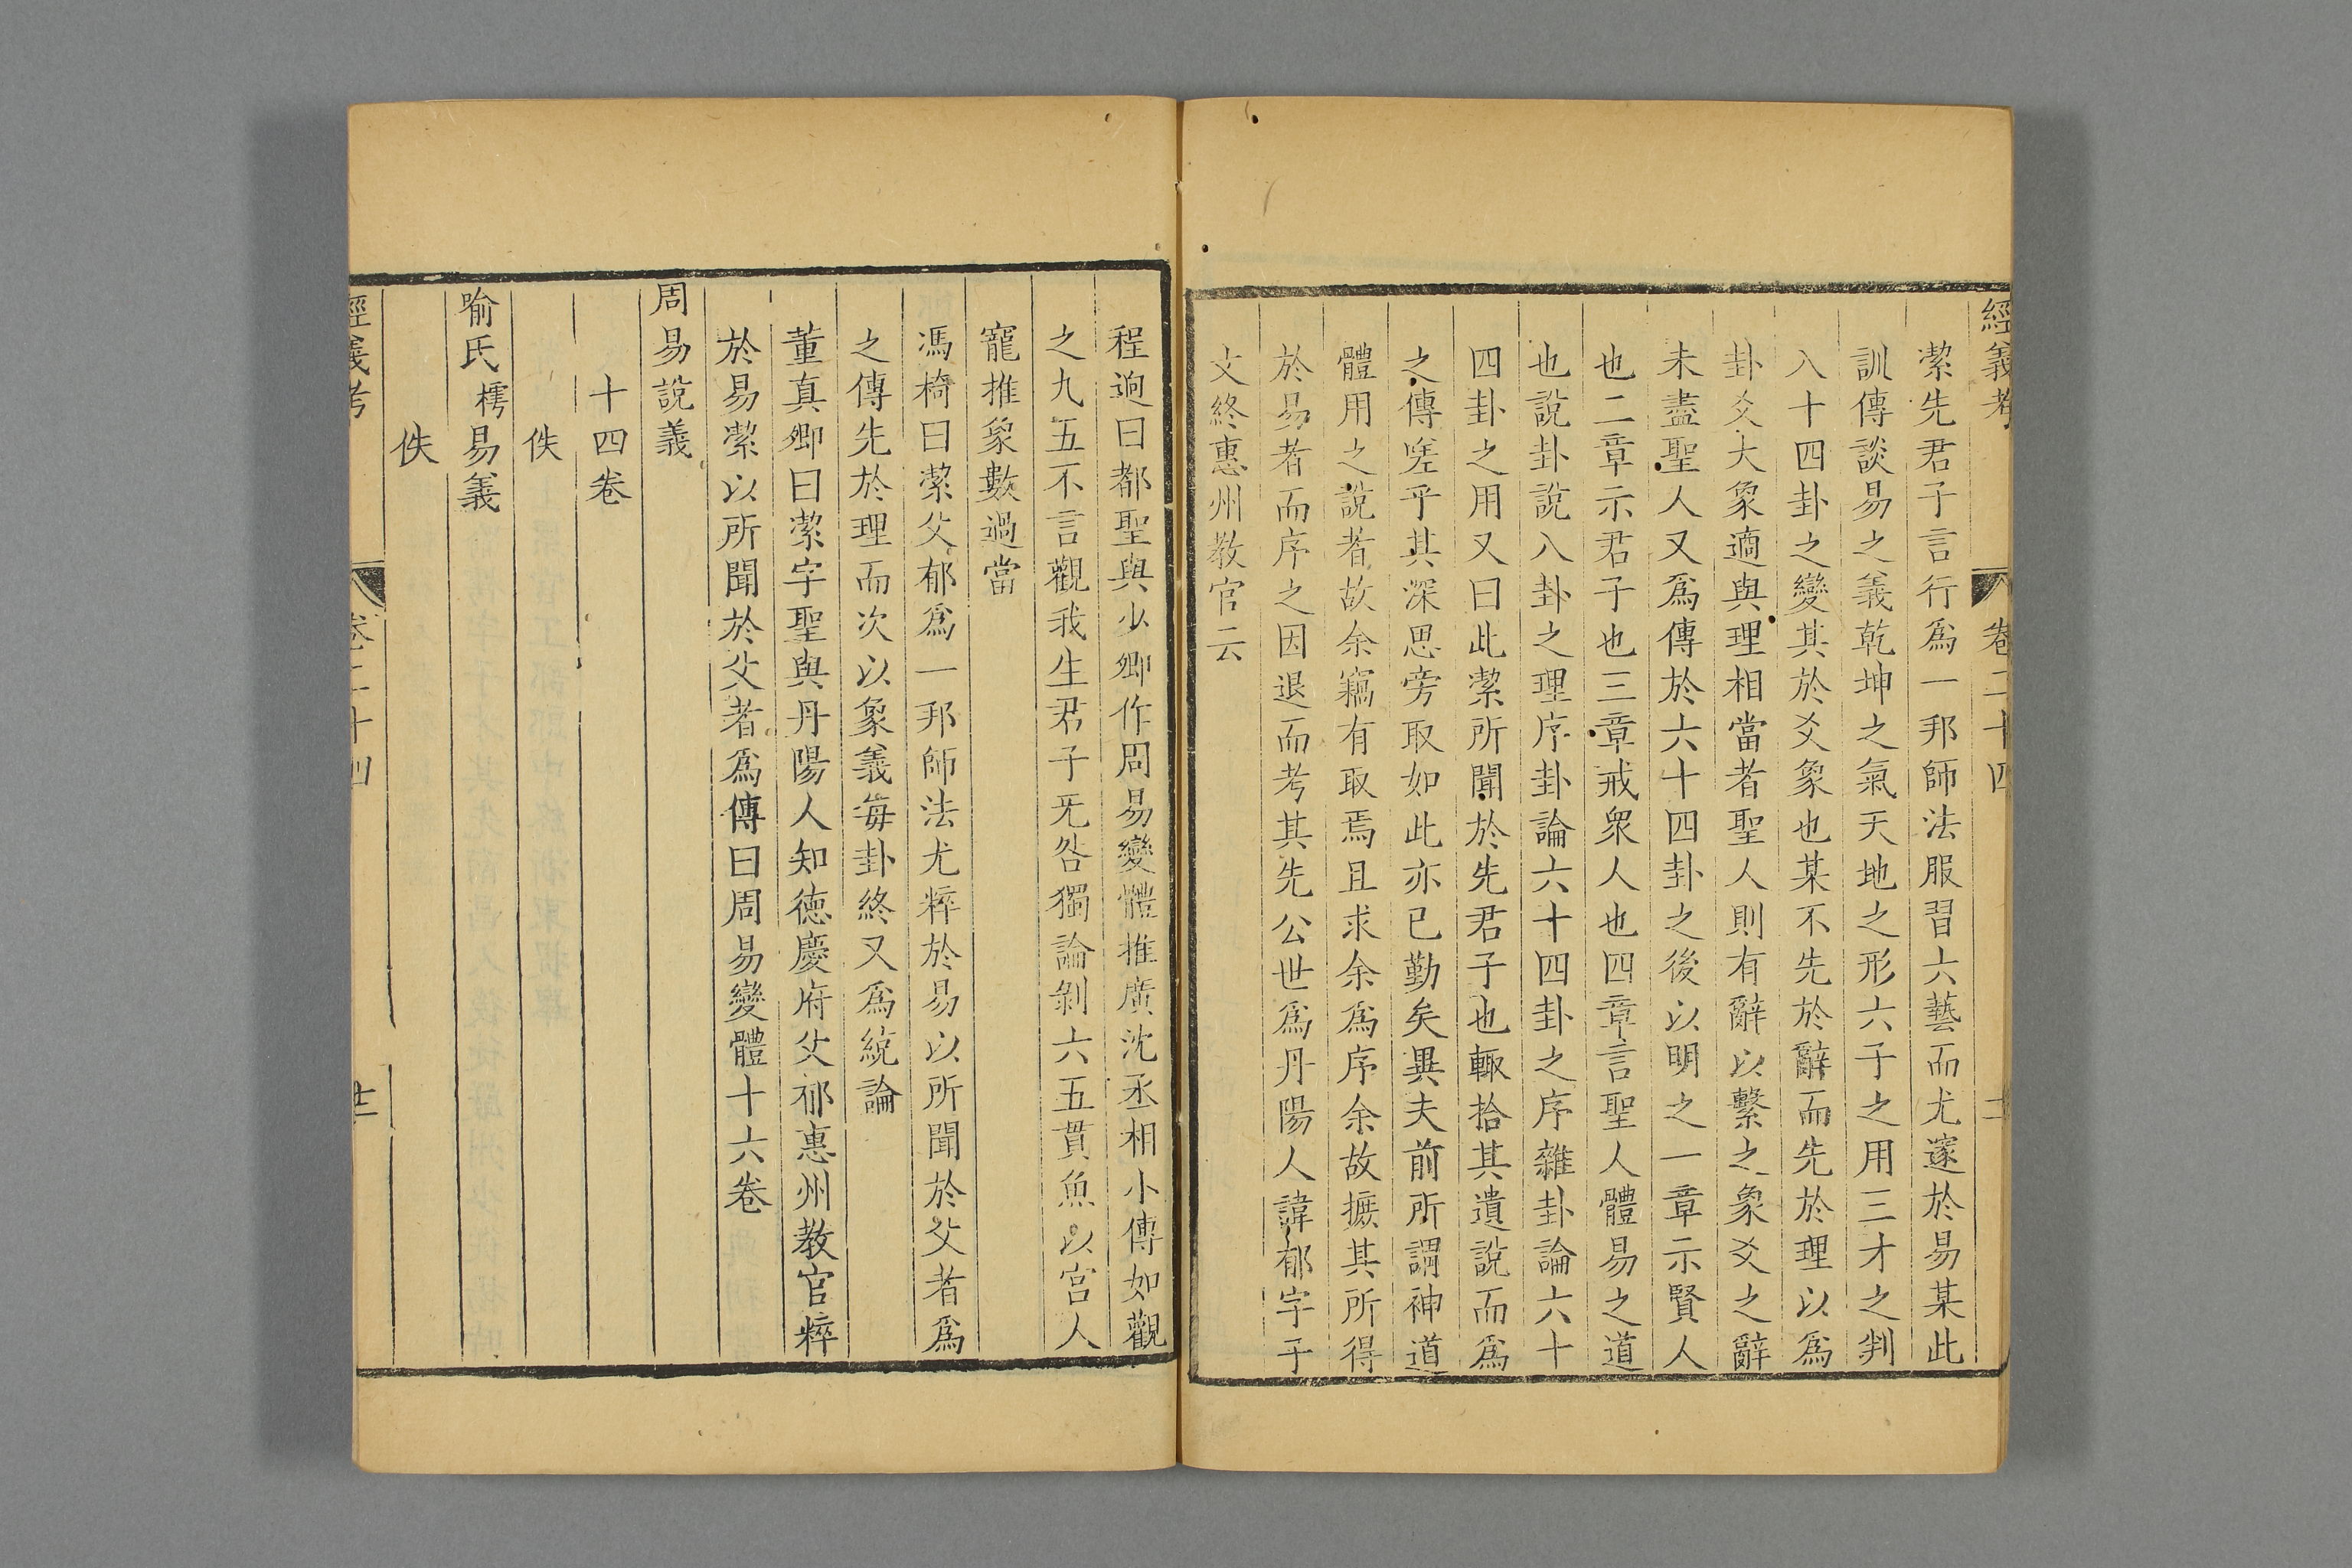 經義考
卷二十四
絜先君子言行爲一邦師法服習六藝而尤邃於易某此
訓傳談易之義乾坤之氣天地之形六子之用三才之判
入十四卦之變其於爻象也某不先於辭而先於理以爲
卦爻大象適與理相當者聖人則有辭以繫之象爻之辭
未盡聖人又爲傳於六十四卦之後以明之一章示賢人
也二章示君子也三章戒衆人也四章言聖人體易之道
也說卦說八卦之理序卦論六十四卦之序雜卦論六十
四卦之用又曰此絜所聞於先君子也輙拾其遺說而爲
之傳嗟乎其深思旁取如此亦已勤矣異夫前所謂神道
體用之說者故余竊有取焉且求余爲序余故摭其所得
於易者而序之因退而考其先公世爲丹陽人諱郁字于
文終惠州教官云
程迥曰都聖與少卿作周易變體推廣沈丞相小傳如觀
之九五不言觀我生君子无咎獨論剝六五貫魚以宮人
寵推象數過當
馮椅曰絜父郁爲一邦師法尤粹於易以所聞於父者爲
之傳先於理而次以象義每卦終又爲統論
董真卿曰絜字聖與丹陽人知德慶府父郁惠州教官粹
於易絜以所聞於父者爲傳曰周易變體十六卷
周易說義
十四卷
佚
喻氏樗易義
佚
經義考
卷二十四
廿